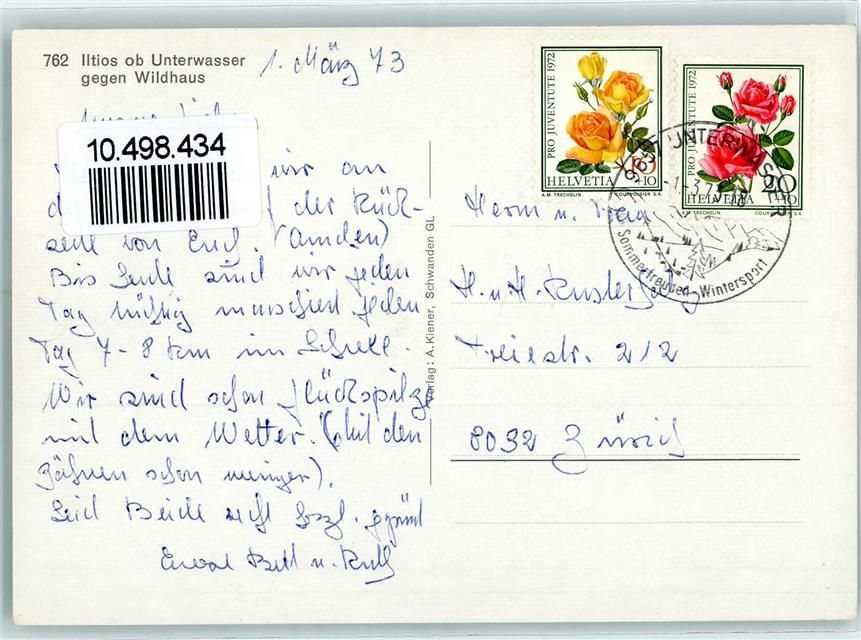 762 Iltios ob Unterwasser
gegen Wildhaus
1. März 73
10.498.434
wir an
der Rück-
seite von Euch. (Amden)
Bis heute sind wir jeden
Tag tüchtig marschiert jeden
Tag 7 - 8 km im Schnee.
Wir sind schon Glückspilze
mit dem Wetter. (Mit den
Zähnen schon weniger).
Seid Beide recht herzl. gegrüsst
Verlag: A. Kiener, Schwanden GL
PRO JUVENTUTE 1972
10
+10
HELVETIA
A.M. TRECHSLIN COURVOISIER S.A.
PRO JUVENTUTE 1972
20
+10
HELVETIA
A.M. TRECHSLIN COURVOISIER S.A.
9657 UNTERWASSER
1-3.73
Sommerfreuden Wintersport
Herrn u. Frau
H. u. H.
212
8032 Zürich